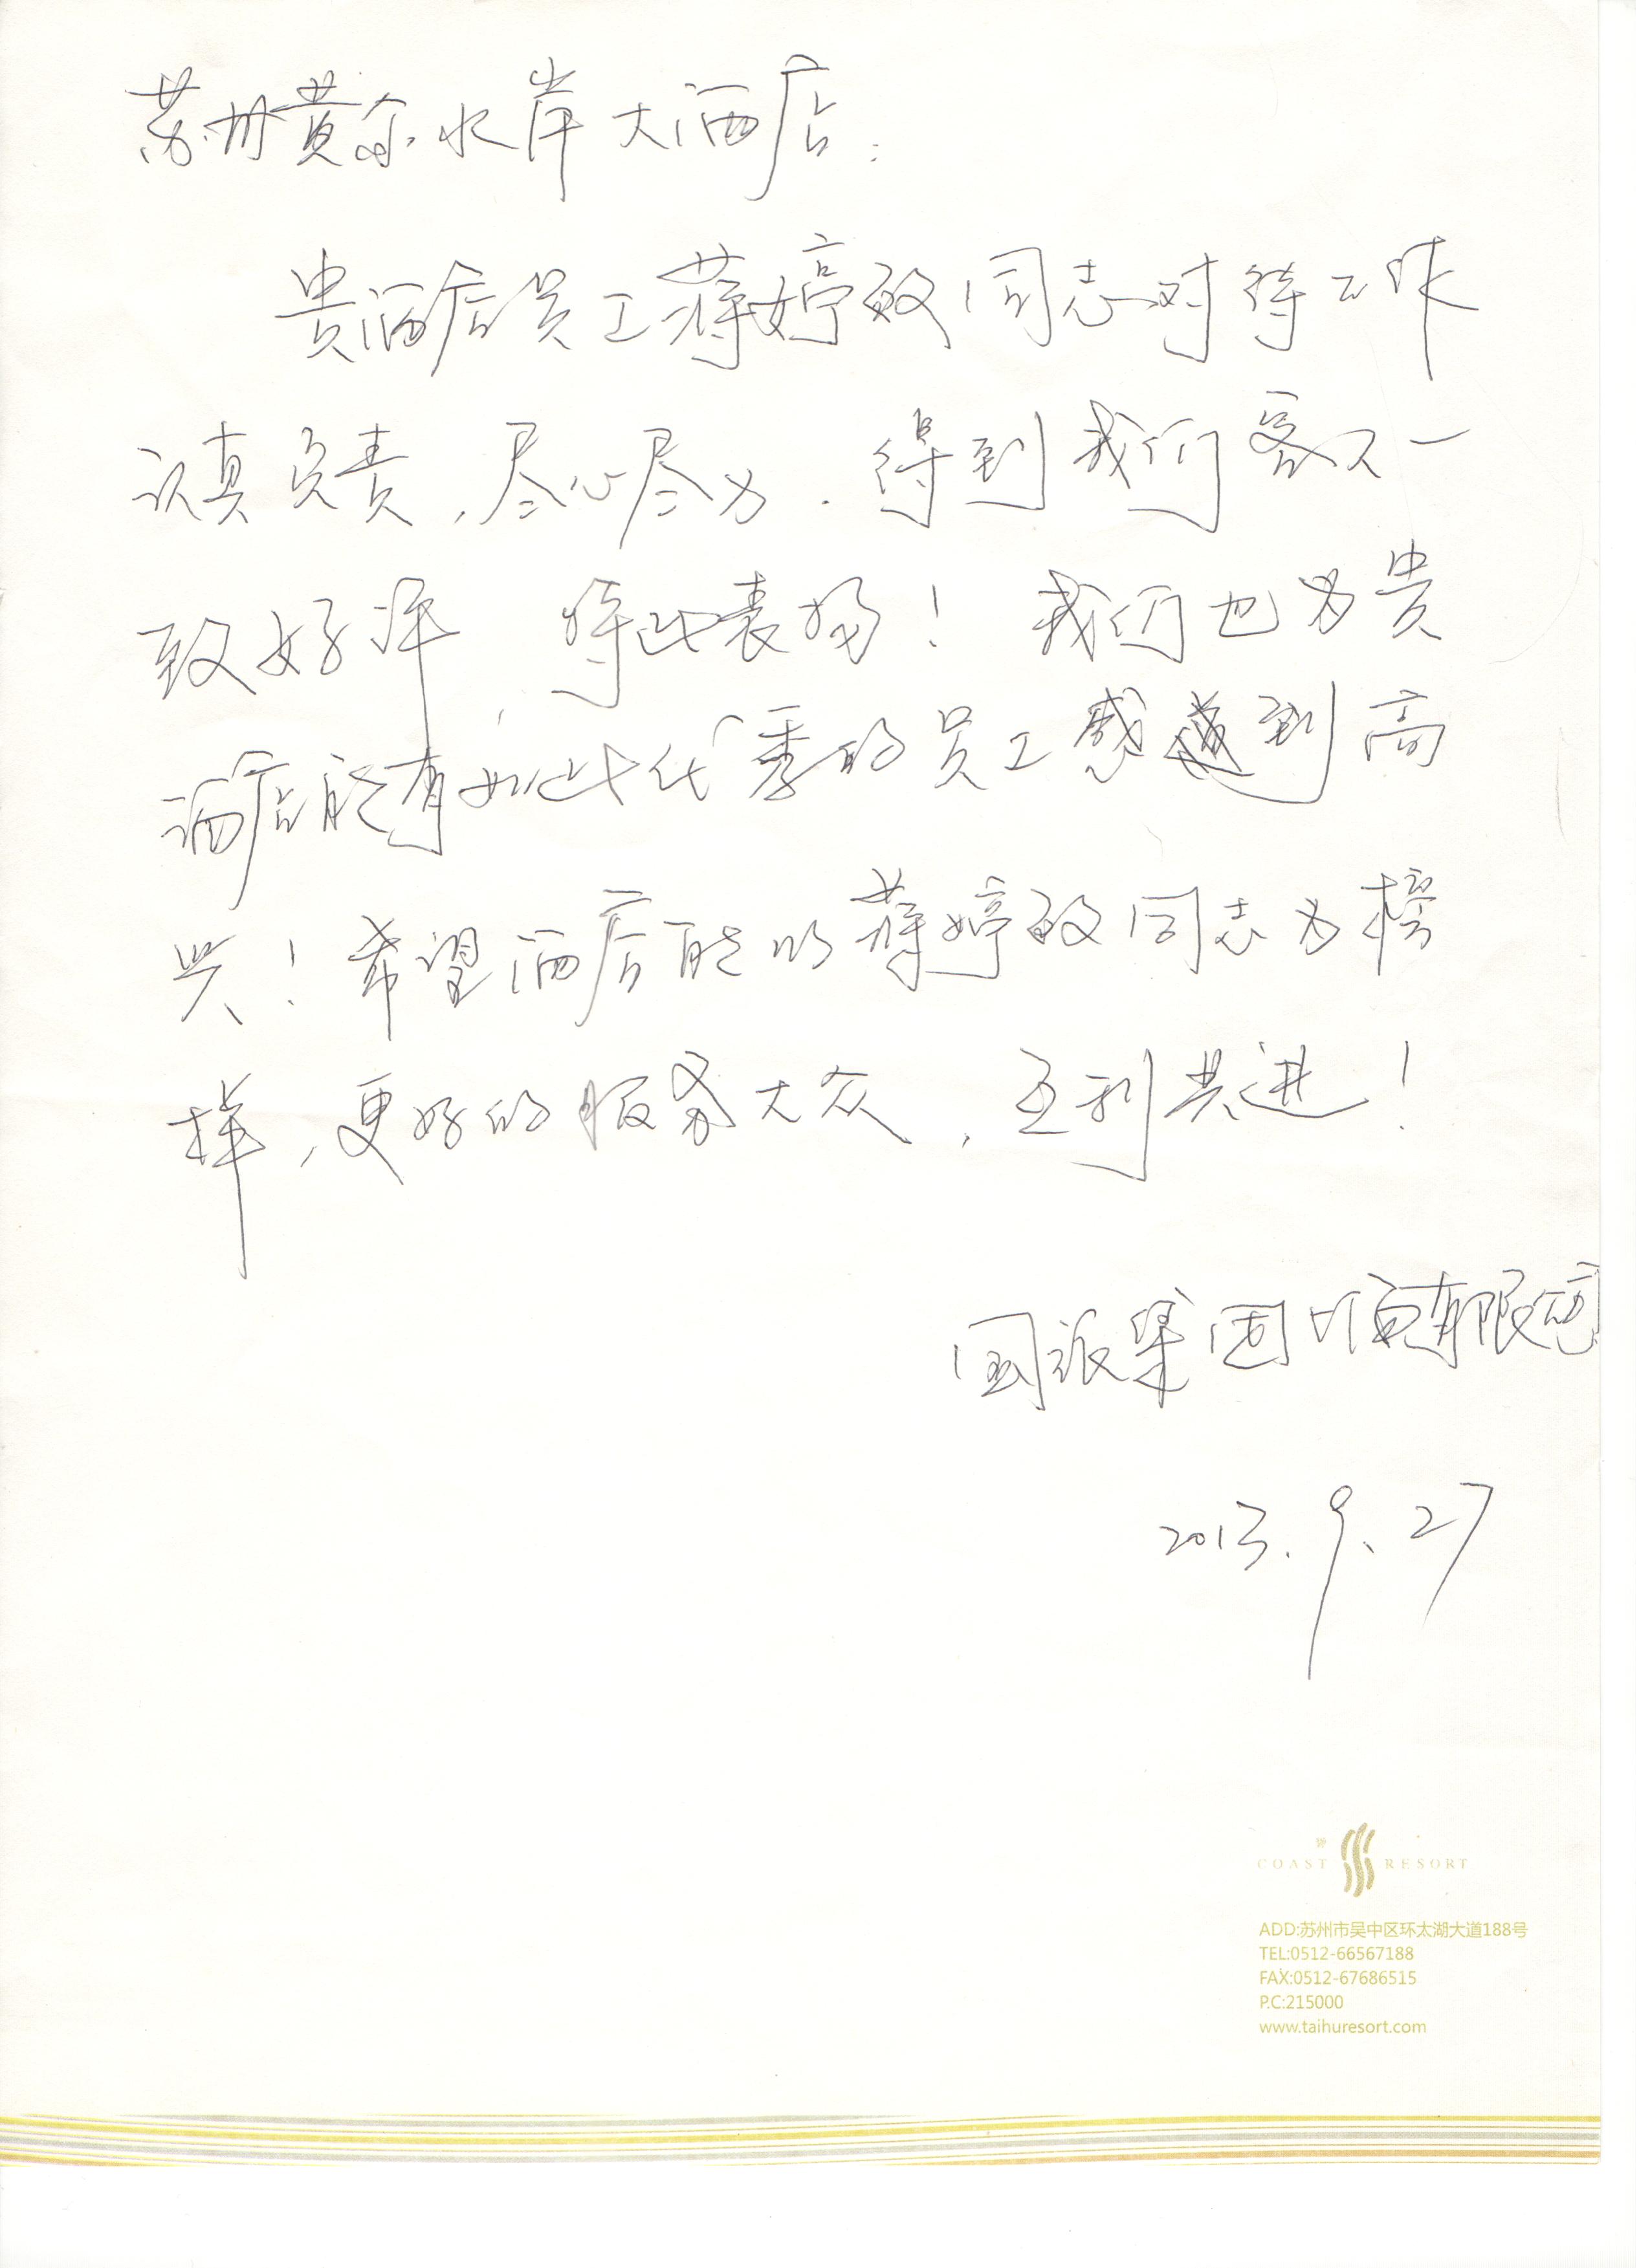 苏州黄尔水岸大酒店:
贵酒店员工蒋婷致同志对待工作
认真负责,尽心尽力.得到我们客人一
致好评,特此表扬!我们也为贵
酒店能有如此优秀的员工感到高
兴!希望酒店能以蒋婷致同志为榜
样,更好的服务大众,互利共进!
国派集团 有限公司
2013.9.27
COAST RESORT
ADD:苏州市吴中区环太湖大道188号
TEL:0512-66567188
FAX:0512-67686515
P.C:215000
www.taihuresort.com